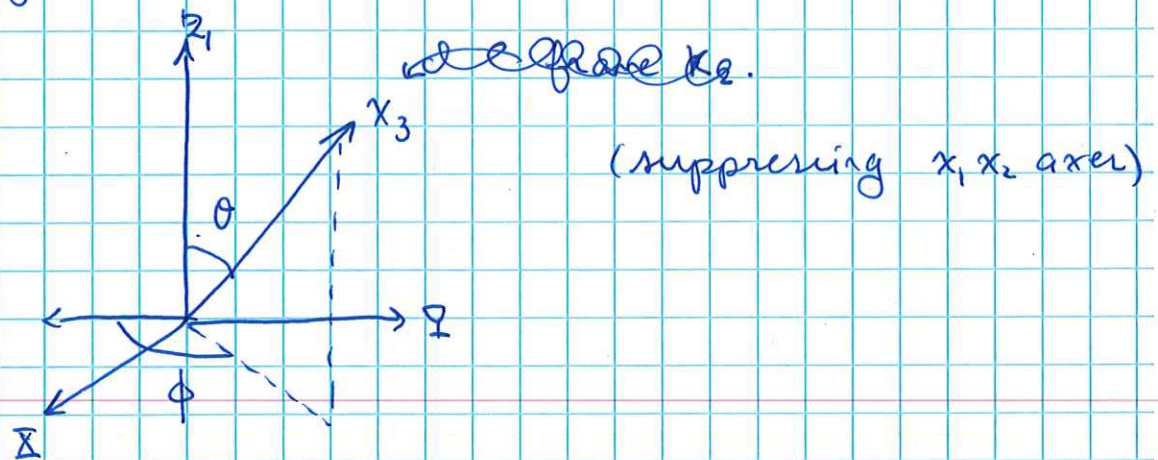 Z₁
x₃
(suppressing x₁ x₂ axes)
θ
Y
φ
X